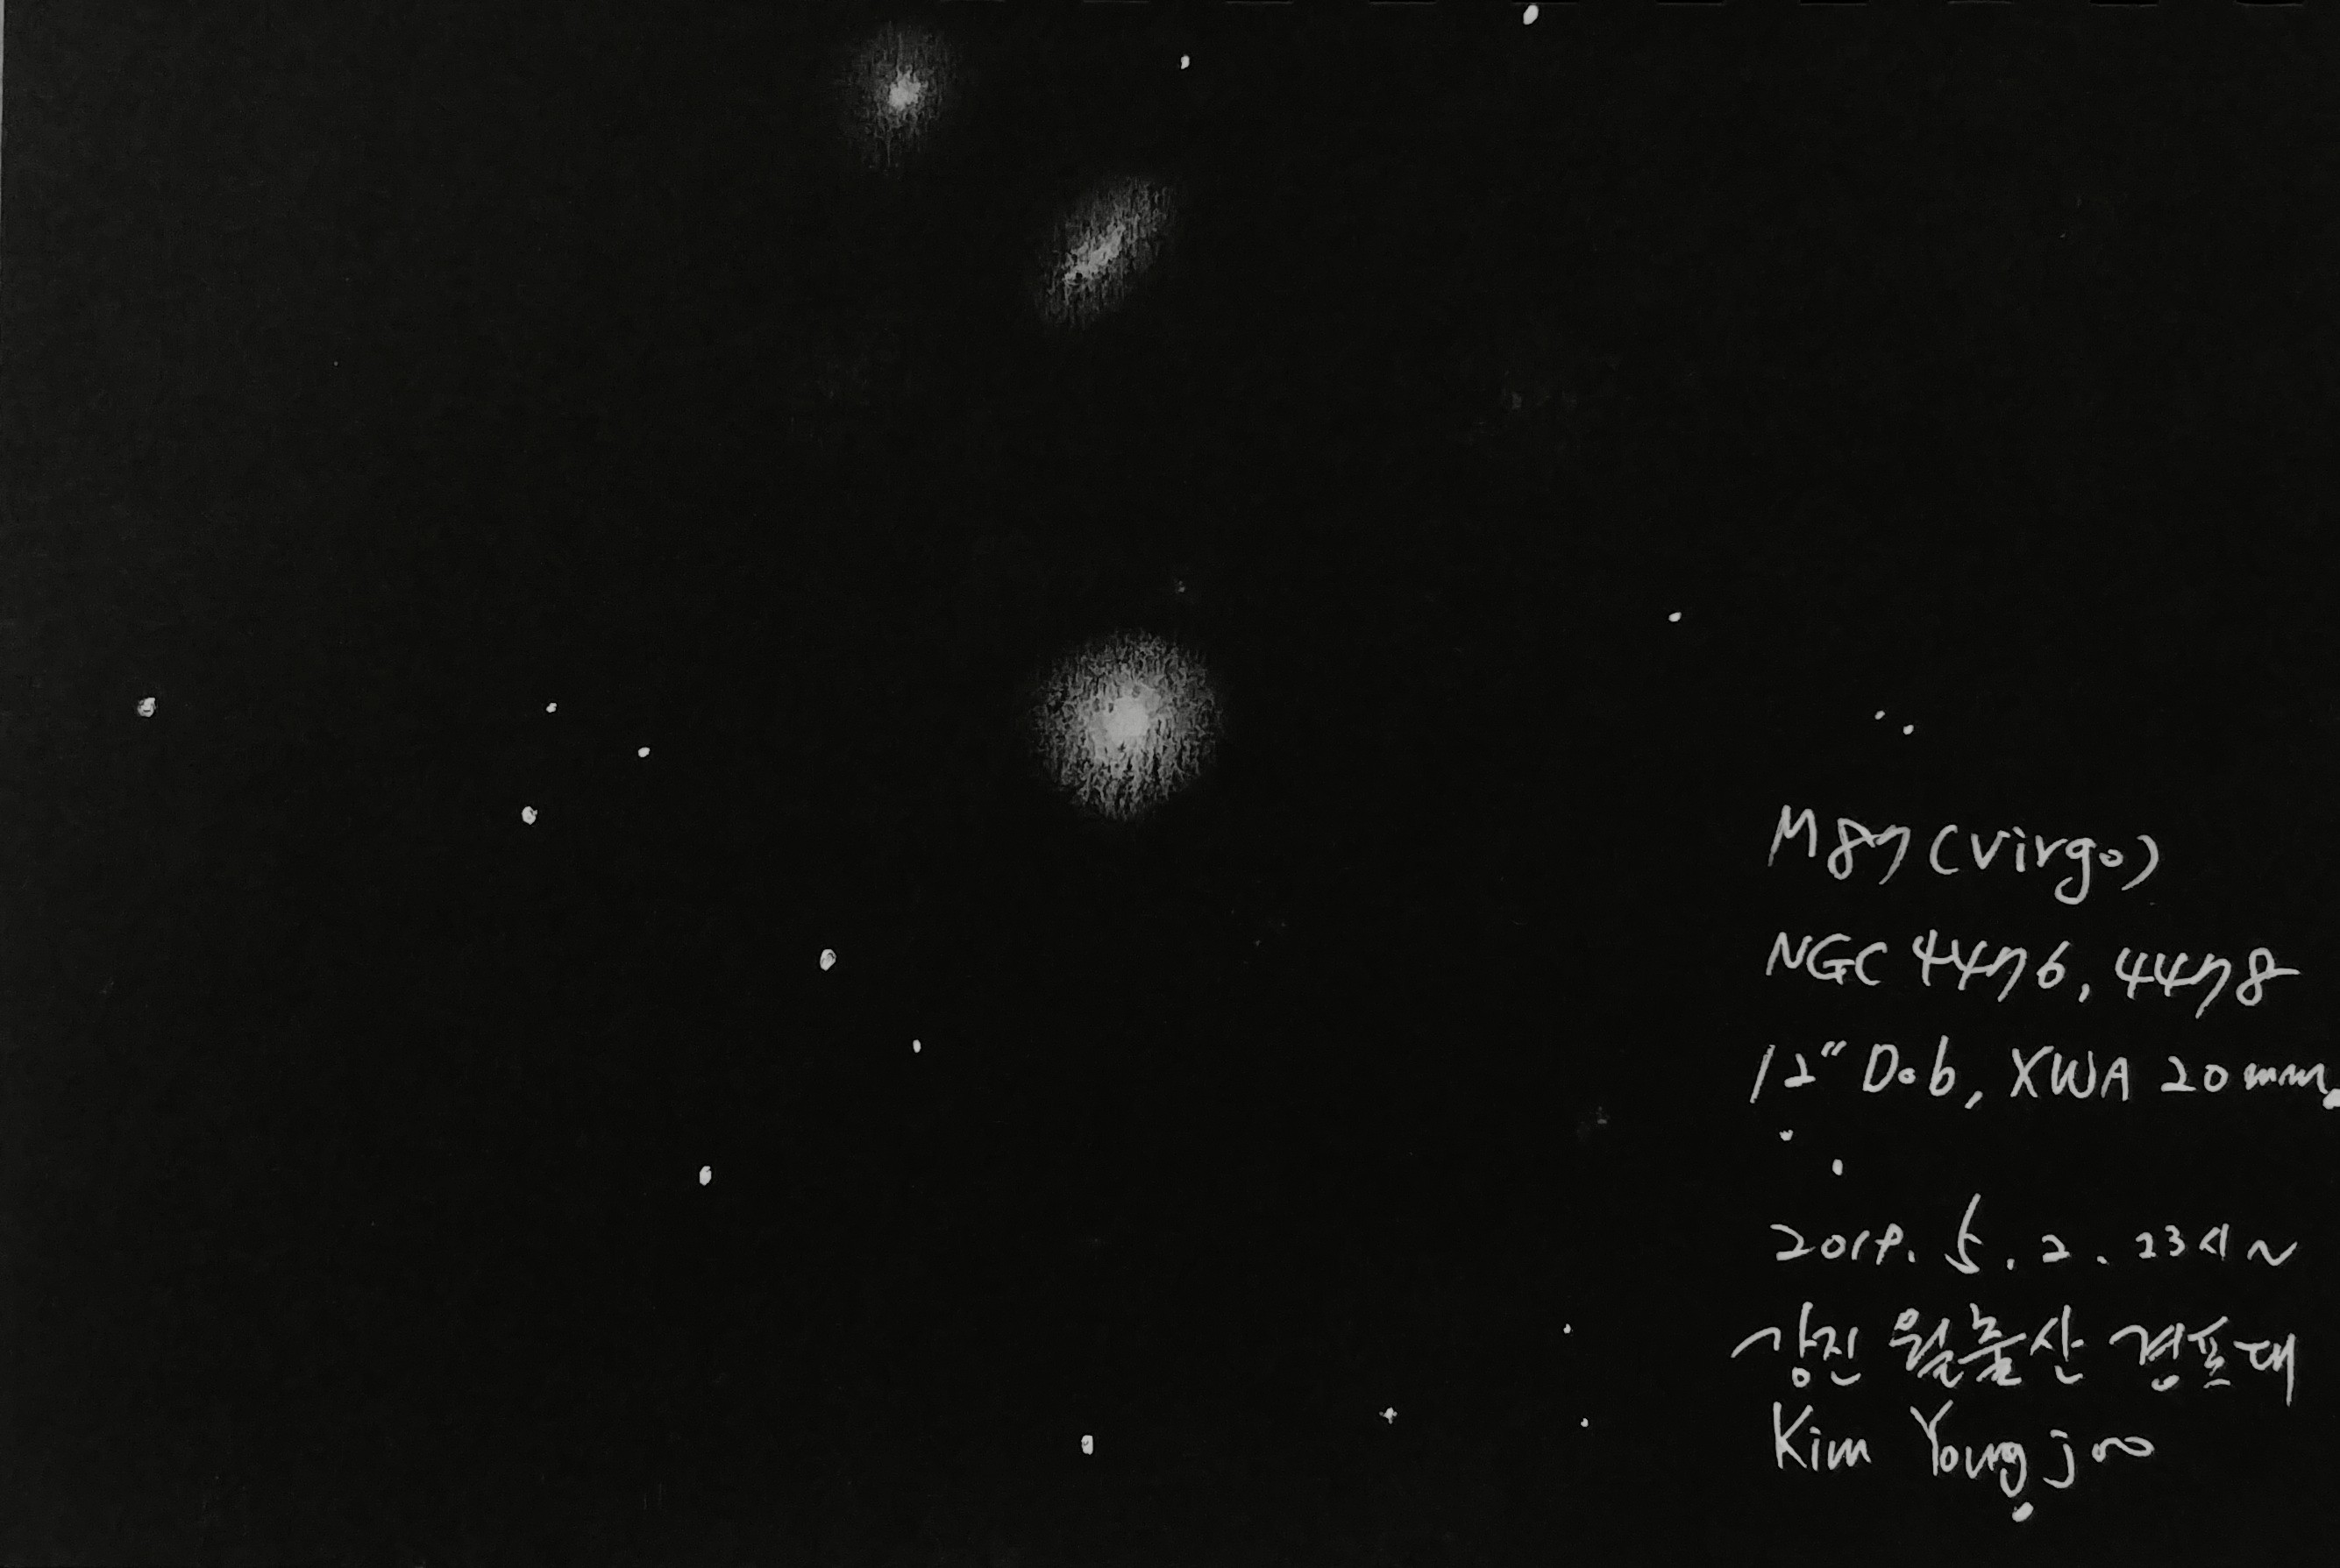 M87 (Virgo)
NGC 4476, 4478
12" Dob, XWA 20mm
2019. 5. 2. 23시~
강진 월출산 경포대
Kim Youngjoo